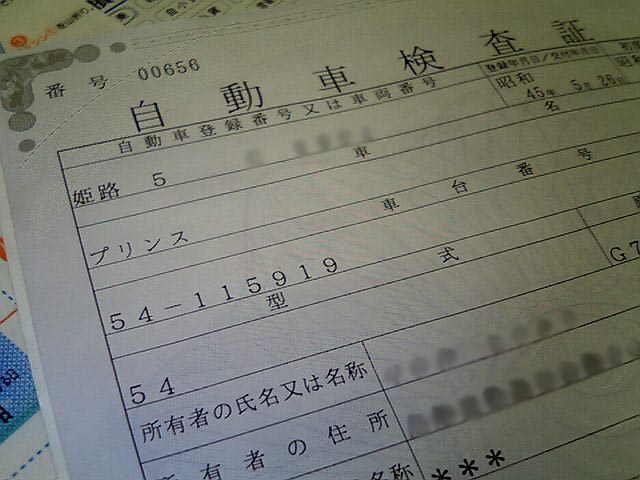 番号 00656
自動車検査証
自動車登録番号又は車両番号
登録年月日/交付年月日
昭和
45年 5月 26日
姫路 5
車名
プリンス
車台番号
54-115919
型式
G7
54
所有者の氏名又は名称
所有者の住所
名称
***